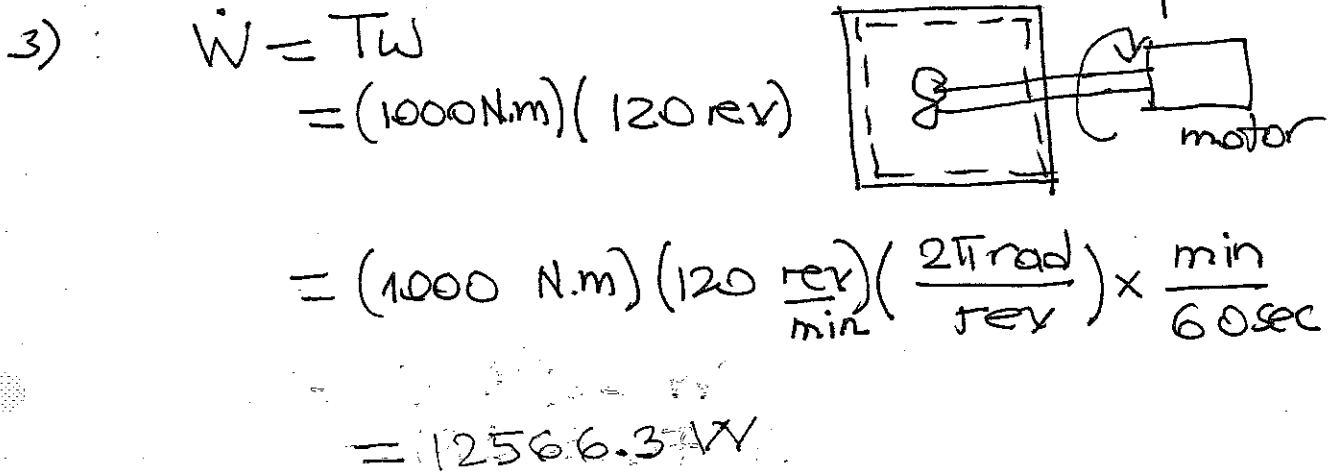 3) : Ẇ = Tω
= (1000 N.m)( 120 rev)
motor
= (1000 N.m) (120 rev/min)( 2π rad/rev ) × min/60sec
= 12566.3 W